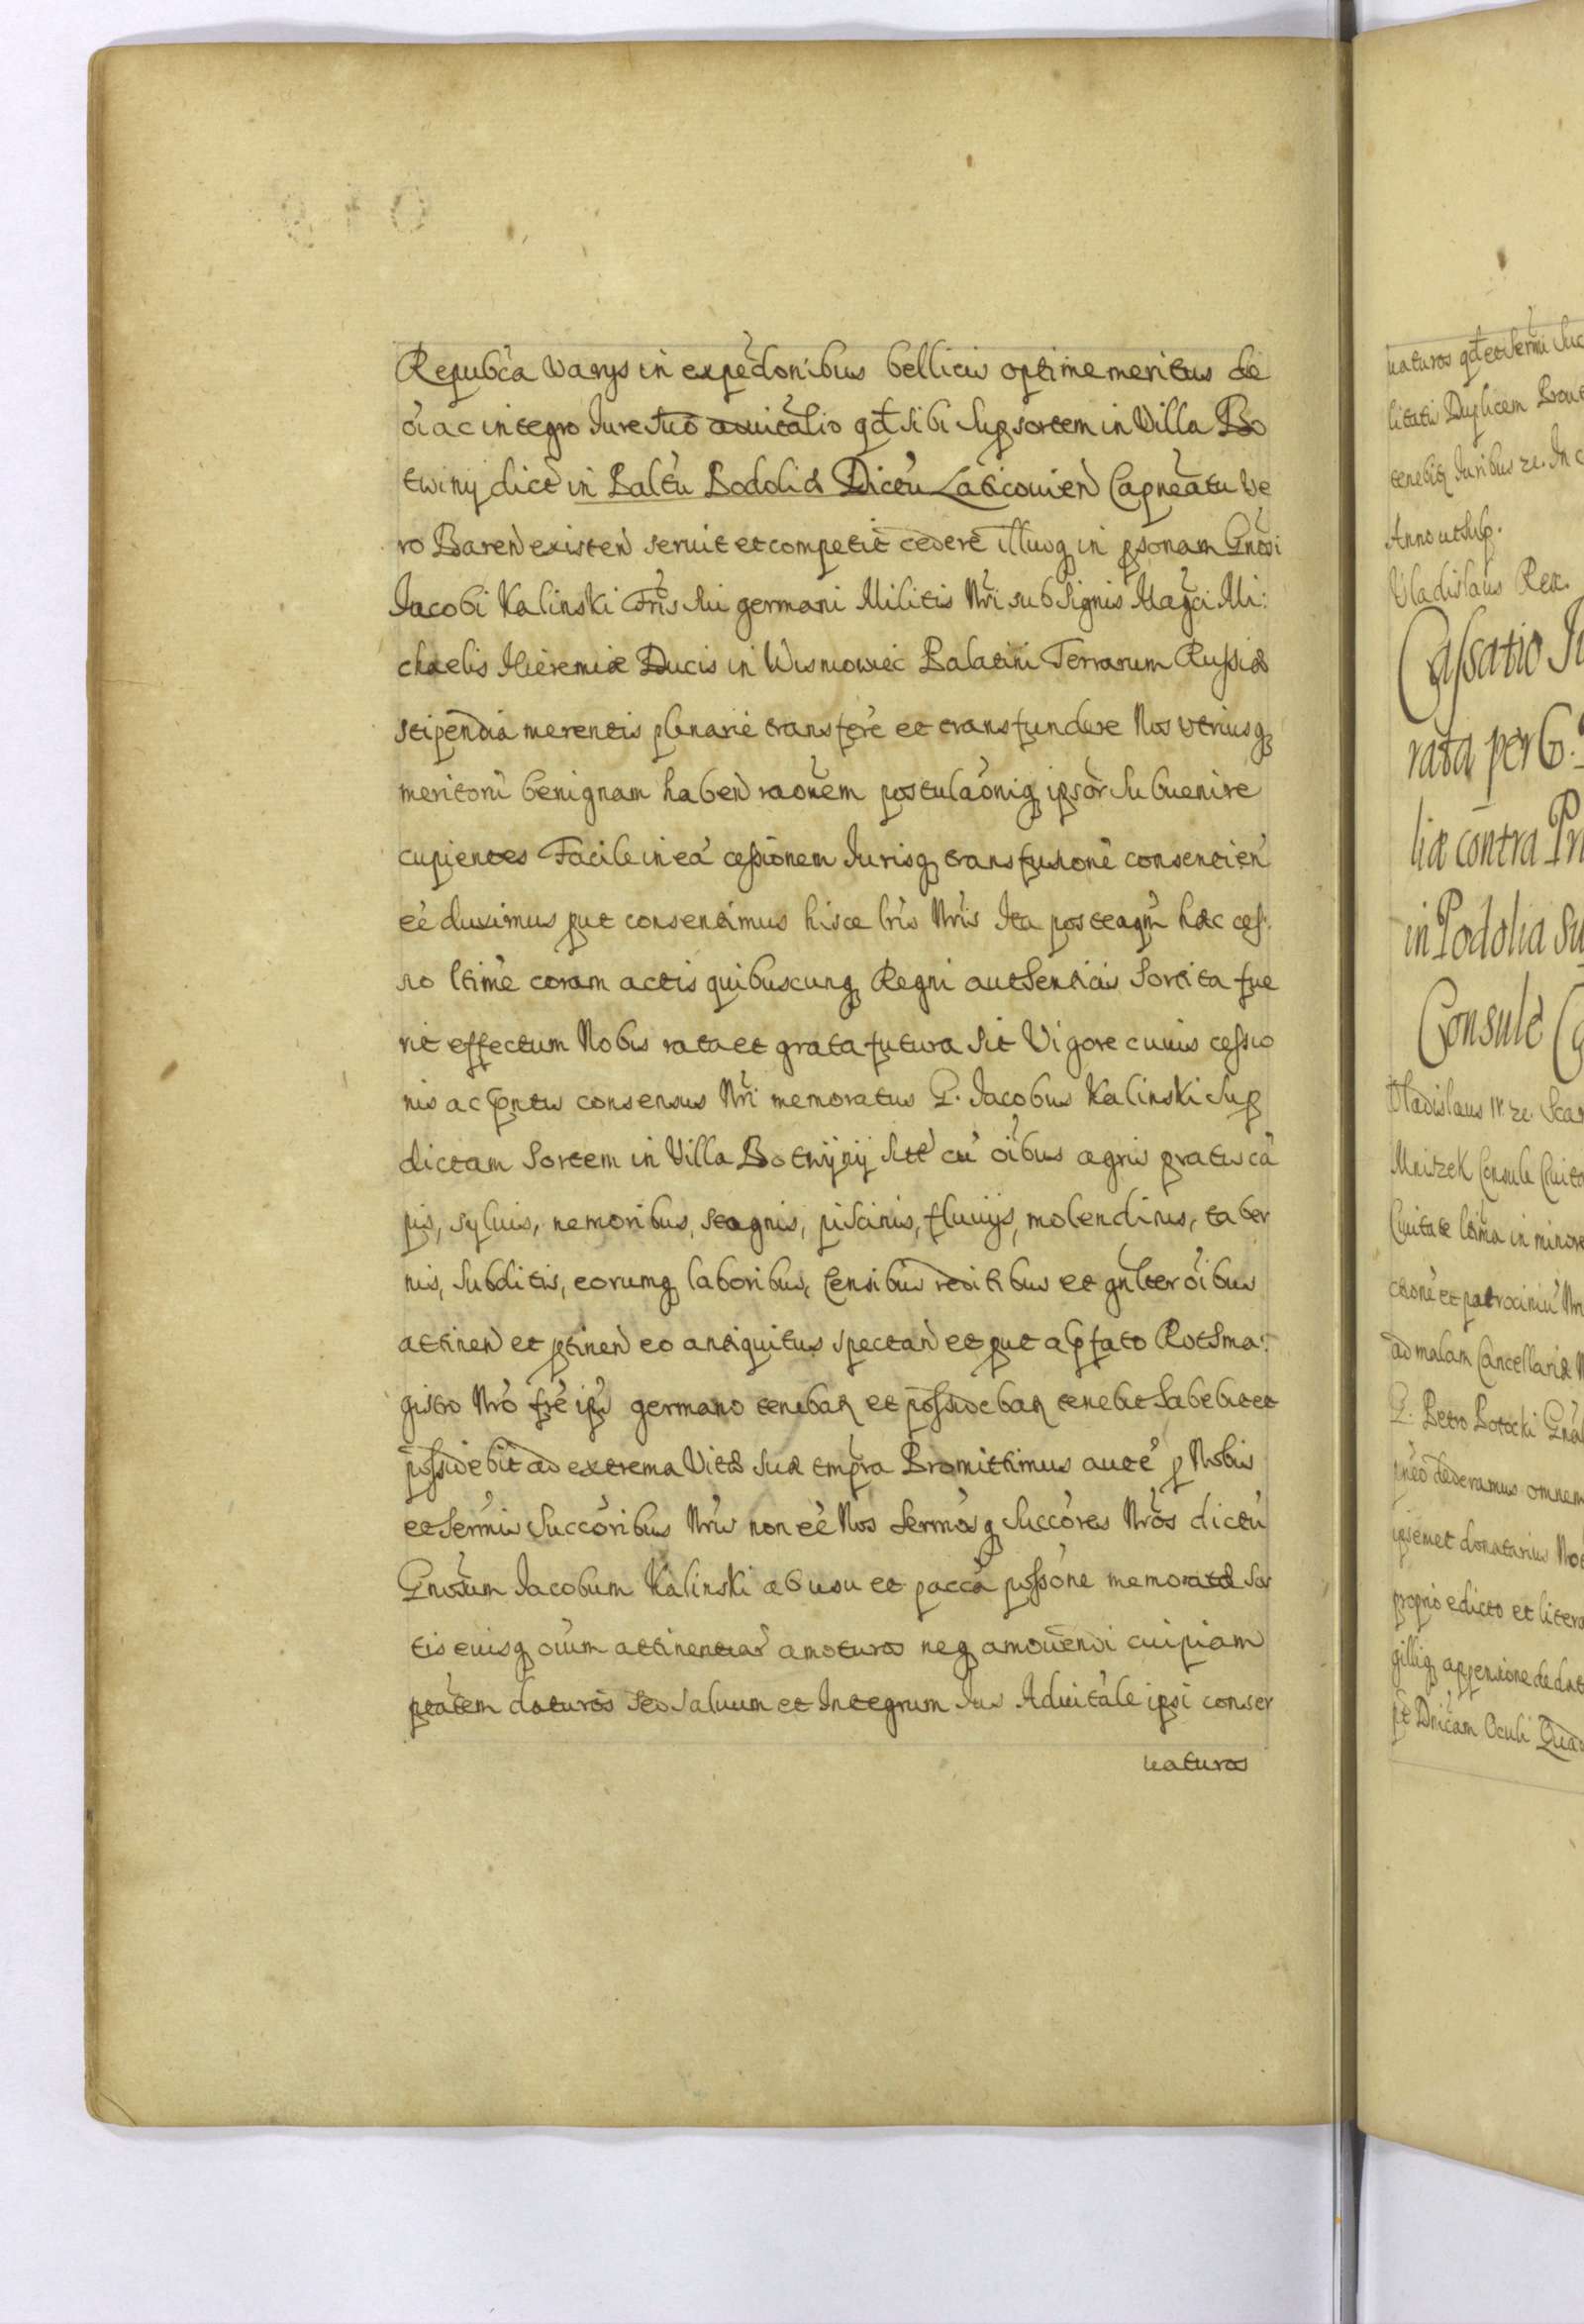 Repubća varys in expedonibus bellicis optime meritus de
oi ac integro Iure suo aduitalio qd sibi sup sortem in Villa Bo
twiny dict in Paltu Podoliæ Dictu Laticouien Capneatu ve
ro Baren existen seruit et competit cedere illudq in psonam Gnosi
Iacobi Kalinski Fris sui germani Militis Nri sub signis Magci Mi:
chaelis Hieremiæ Ducis in Wisniowiec Palatini Terrarum Russiæ
stipendia merentis plenarie transfere et transfundere Nos vtriusq
meritorũ benignam haben raonem postulaoniq ipsor subuenire
cupientes Facile in eã cessionem Iurisq transfusionẽ consentien
eẽ duximus put consentimus hisce lris Nris Ita posteaqm hæc ces:
sio ltime coram actis quibuscunq Regni authenticis sortita fue
rit effectum Nobis rata et grata futura sit Vigore cuius cessio
nis ac pntis consensus Nri memoratus G. Iacobus Kalinski sup
dictam sortem in Villa Botwijnij sitt cũ oibus agris pratis cã
pis, syluis, nemoribus, stagnis, piscinis, fluuijs, molendinis, taber
nis, subditis, eorumq laboribus, Censibus reditibus et gnlter oibus
attinen et ptinen eo antiquitus spectan et put a pfato Rothma:
gistro Nro fre ipsi germano tenebat et possidebat tenebit habebit et
possidebit ad extrema Vitæ suæ tmpra Promittimus autẽ p Nobis
et Sermis Succoribus Nris non eẽ Nos Sermosq Succores Nros dictũ
Gnosum Iacobum Kalinski ab usu et paccã possone memoratæ sor
tis eiusq oium attinentiar amoturos neq amouendi cuipiam
ptatem daturos sed saluum et Integrum Ius Aduitale ipsi conser
uaturos
uaturos qd et Sermi Suc
litatis Duplicem Pout
tenebit Iuribus ze. In c
Anno ut sup.
Vladislaus Rex.
Cassatio Iu
rata per G.
liæ contra Pr
in Podolia Su
Consule
Vladislaus IV. ze.
Mniszek Consule Ciuita
Ciuitate ltima in minore
ctionẽ et patrociniũ Nr
ad malam Cancellariæ
G. Petro Potocki Gnal
dederamus omnem
ipsemet donatarius
proprio edicto et litera
gilliq appensione
Dnicam Oculi Quad